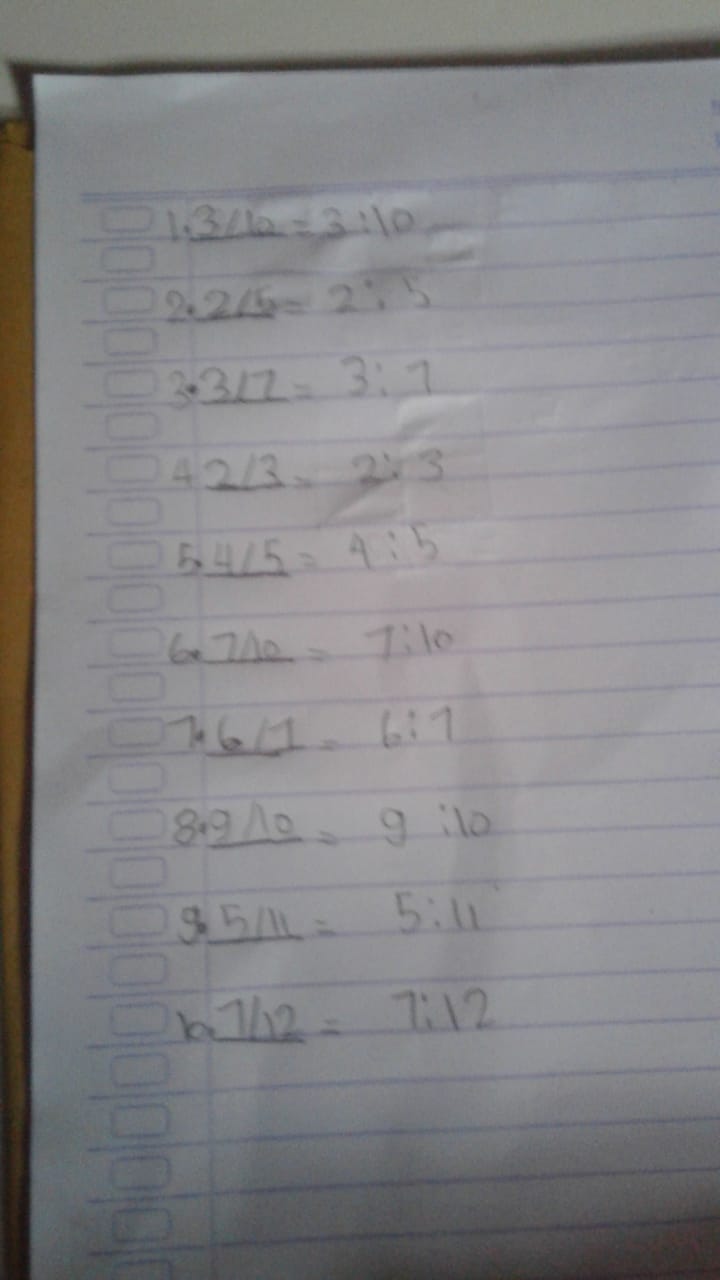 1. 3/10 = 3:10
2. 2/5 = 2:5
3. 3/7 = 3:7
4 2/3 = 2:3
5. 4/5 = 4:5
6. 7/10 = 7:10
7. 6/7 = 6:7
8. 9/10 = 9:10
9. 5/11 = 5:11
10. 7/12 = 7:12